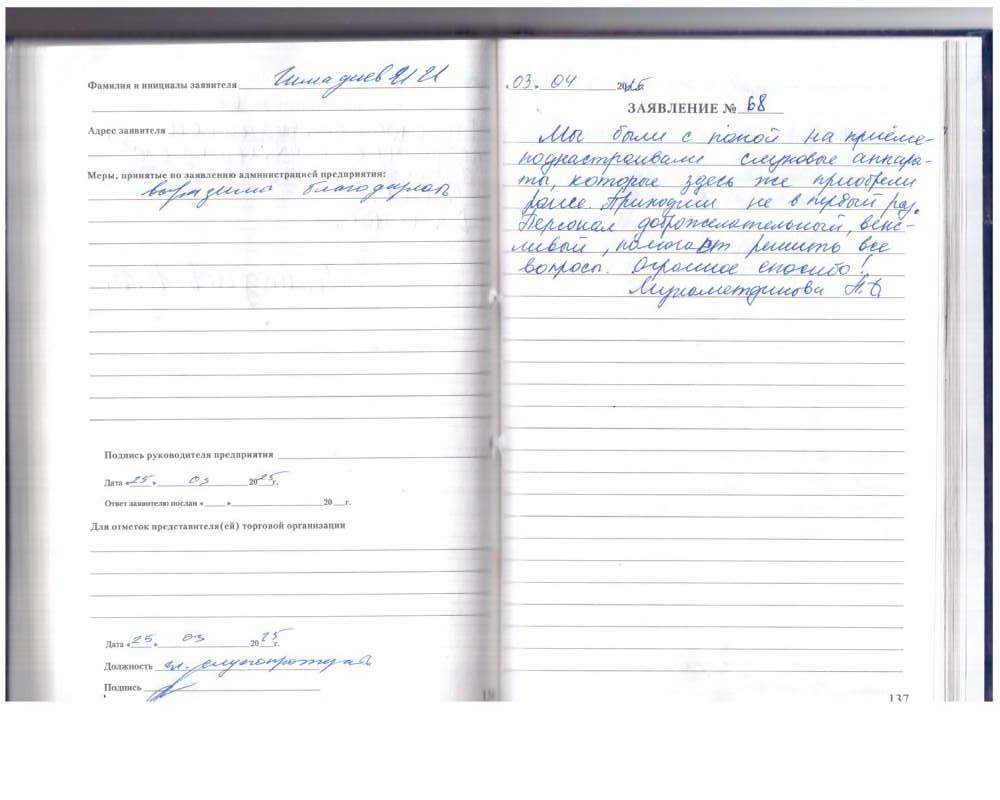 Фамилия и инициалы заявителя Гимадиев И И
Адрес заявителя
Меры, принятые по заявлению администрацией предприятия:
выражена благодарность
Подпись руководителя предприятия
Дата «25» 03 2025г.
Ответ заявителю послан « » 20 г.
Для отметок представителя(ей) торговой организации
Дата «25» 03 2025г.
Должность
Подпись
03. 04 2025
ЗАЯВЛЕНИЕ № 68
Мы были с папой на приёме-
поднастраивали слуховые аппара-
ты, которые здесь же приобрели
ранее. Приходим не в первый раз.
Персонал доброжелательный, веж-
ливый, помогают решить все
вопросы. Огромное спасибо!
Мухаметдинова
137